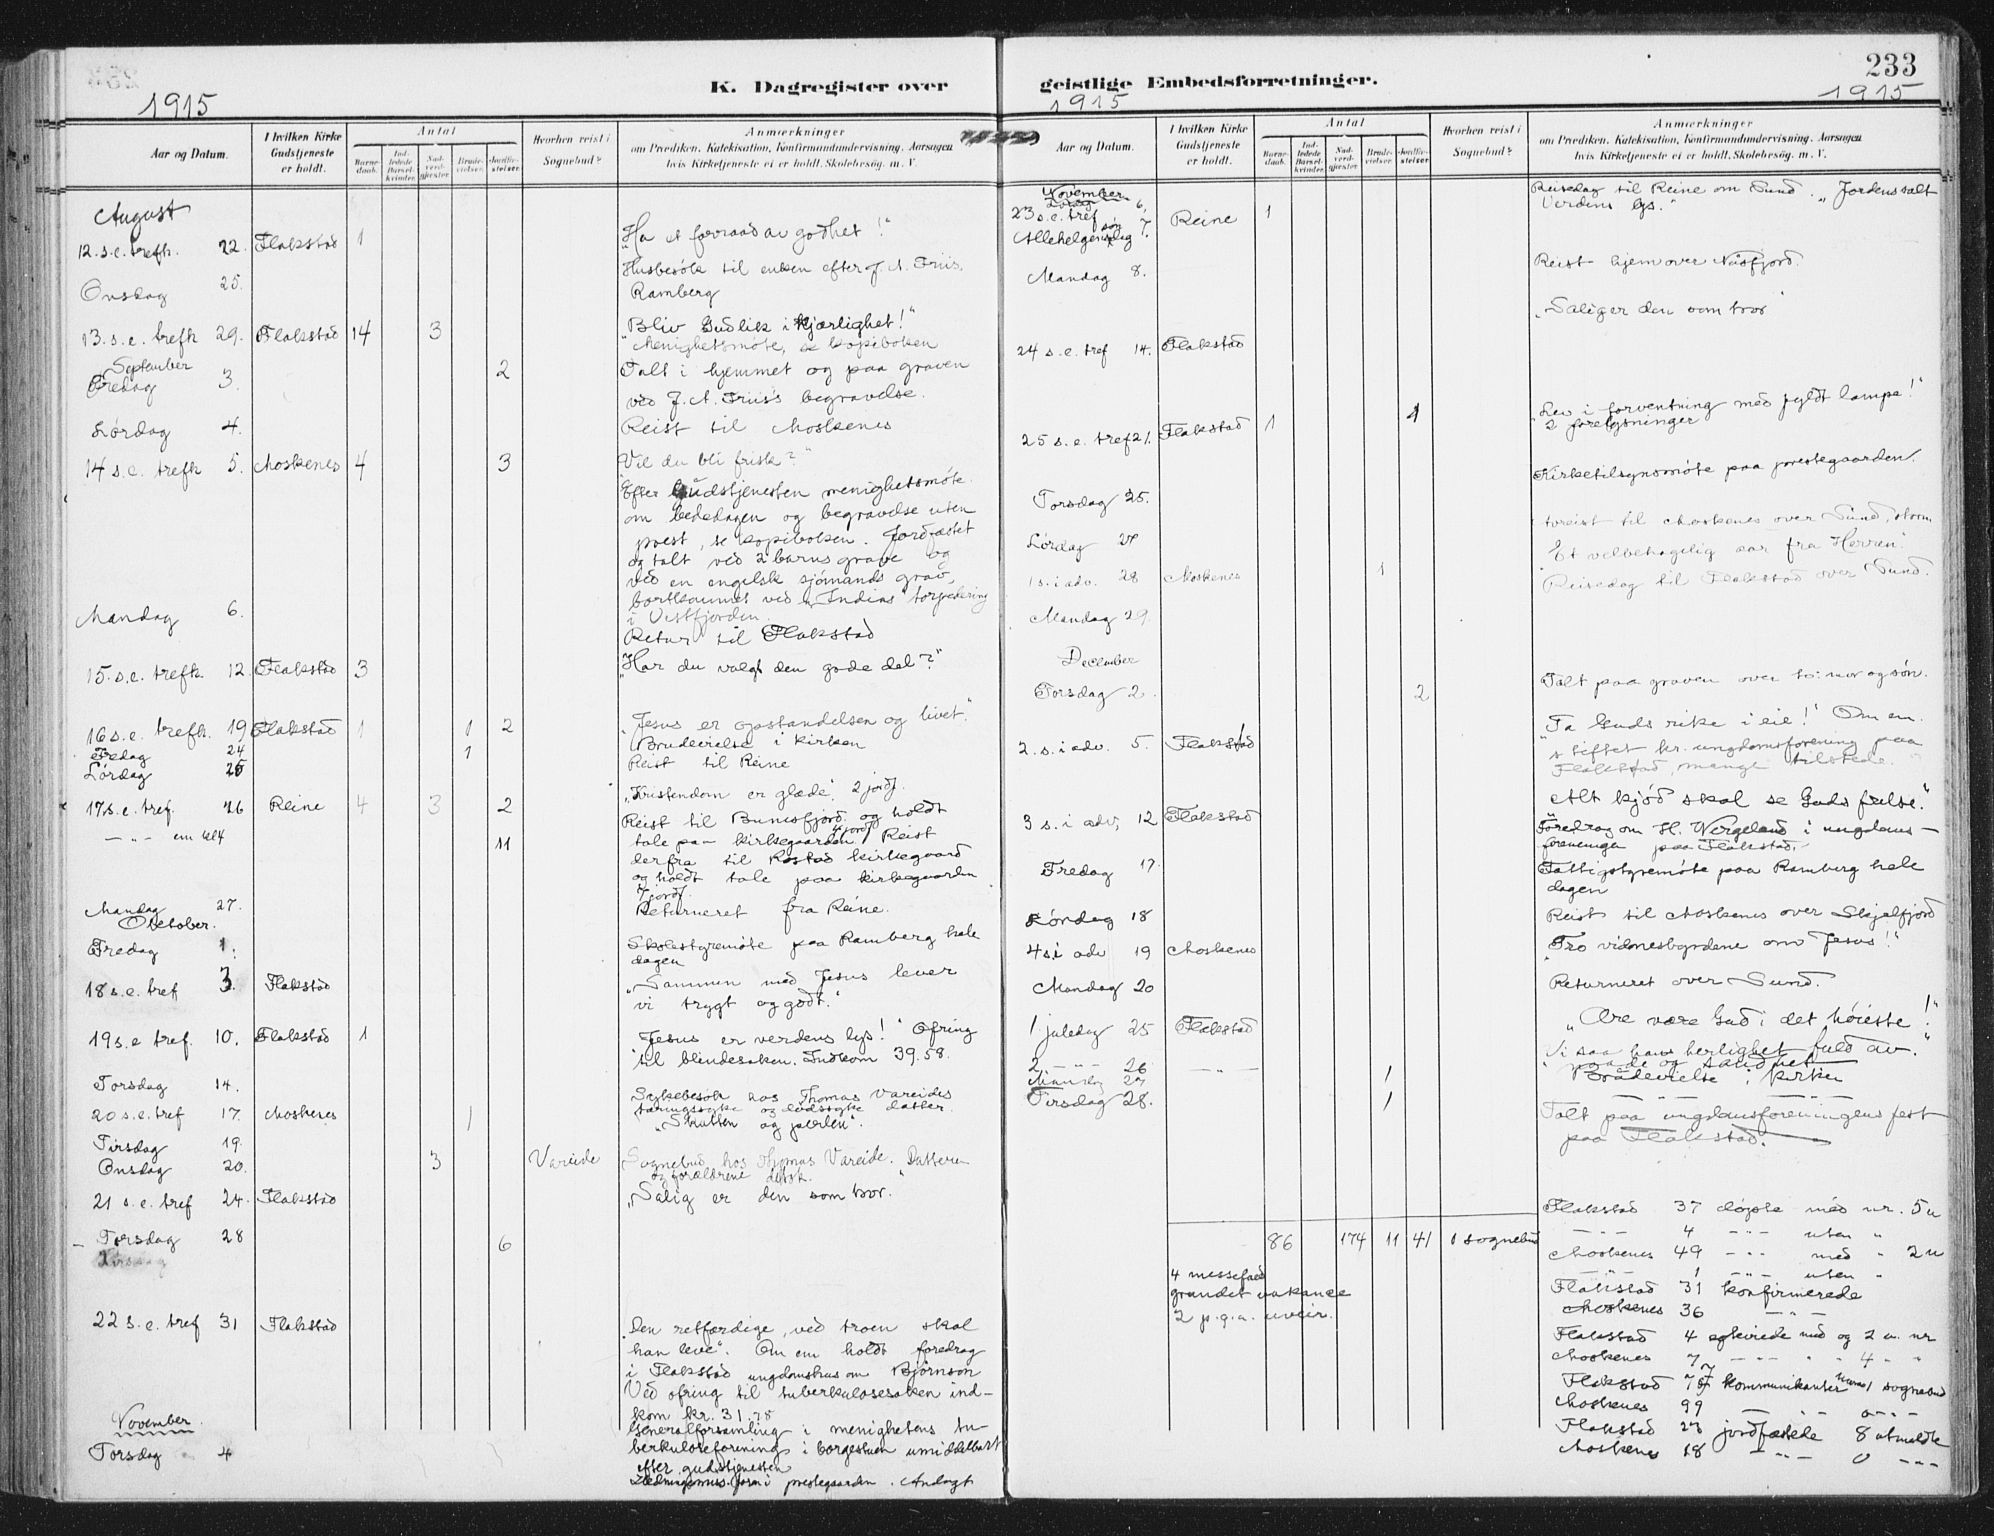 K. Dagregister over
1915
Aar og Datum.
I hvilken Kirke Gudstjeneste er holdt.
Antal
Barne-daab.
Ind-ledede Barsel-kvinder.
Nad-verd-gjæster.
Brude-vielser.
Jordfæ-stelser.
Hvorhen reist i Sognebud?
Anmærkninger
om Prædiken, Katekisation, Konfirmandundervisning, Aarsagen
hvis Kirketjeneste ei er holdt, Skolebesøg, m. V.
August
12. s.e. trefh. 22. Flakstad 1 „Ha et forraad av godhet!"
Onsdag 25. Husbesök til enken efter J. A. Friis,
Ramberg
13. s.e. trefh 29. Flakstad 14 3 „Bliv Gud lik i kjærlighet!"
Menighetsmöte, se kopiboken
September
Fredag 3. 2 Talt i hjemmet og paa graven
ved J. A. Friis's begravelse.
Lørdag 4. Reist til Moskenes
14 s.e. trefh 5. Moskenes 4 3 „Vil du bli frisk?"
Efter Gudstjenesten menighetsmöte
om bededagen og begravelse uten
prest, se kopiboken. Jordfæstet
og talt ved 2 barns grave og
ved en engelsk sjömands grav,
ved „Indias" torpedering
i Vestfjorden.
Mandag 6. Retur til Flakstad
15. s.e. trefh. 12 Flakstad 3 „Har du valgt den gode del?"
16 s.e. trefh. 19 Flakstad 1 1 2 „Jesus er opstandelsen og livet."
Fredag 24 1 Brudevielse i kirken
Lördag 25 Reist til Reine
17. s.e. tref. 26 Reine 4 3 2 „Kristendom er glæde", 2 jordf.
— " — em kl 4 11 Reist til Bunesfjord og holdt
tale paa kirkegaarden, 4 jordf. Reist
derfra til kirkegaard
og holdt tale paa kirkegaarden
7 jordf.
Mandag 27. Returneret fra Reine.
October.
Fredag 1. Skolestyremöte paa Ramberg hele
dagen
18 s.e. tref 3. Flakstad „Sammen med Jesus lever
vi trygt og godt."
19 s.e tref. 10. Flakstad 1 „Jesus er verdens lys!" Ofring
til blindesaken. Indkom 39.58.
Torsdag 14. Sykebesök hos Thomas Vareides
tæringssyke og dødssyke datter.
20 s.e. tref 17. Moskenes 1 „Skatten og perlen".
Tirsdag 19.
Onsdag 20. 3 Vareide Sognebud hos Thomas Vareide. Datteren
og forældrene delt.
21 s.e. tref 24. Flakstad „Salig er den som tror."
Torsdag 28 6
22 s.e. tref 31 Flakstad „Den retfærdige, ved troen skal
han leve". Om em holdt foredrag
i Flakstad ungdomshus om Björnson
Ved ofring til tuberkulosesaken ind-
kom kr. 31.75
Generalforsamling i menighetens tu-
berkuloseforening i borgestuen umiddelbart
efter gudstjenesten
November.
Torsdag 4 i prestegaarden. Andagt
geistlige Embedsforretninger.
233
1915
1915
Aar og Datum.
I hvilken Kirke Gudstjeneste er holdt.
Antal
Barne-daab.
Ind-ledede Barsel-kvinder.
Nad-verd-gjæster.
Brude-vielser.
Jordfæ-stelser.
Hvorhen reist i Sognebud?
Anmærkninger
om Prædiken, Katekisation, Konfirmandundervisning, Aarsagen
hvis Kirketjeneste ei er holdt, Skolebesøg, m. V.
November
6. Reisedag til Reine om Sund.
23 s.e. tref Allehelgensdag 7. Reine 1 „Jordens salt
Verdens lys."
Mandag 8. Reist hjem over Nusfjord.
24 s.e. tref 14. Flakstad „Salig er den som tror"
25 s.e. tref 21. Flakstad 1 1 „Lev i forventning med fyldt lampe!"
2 forelysninger
Torsdag 25. Kirketilsynsmöte paa prestegaarden.
Lördag 27 til Moskenes over Sund, storm
1 s. i adv. 28 Moskenes 1 „Et velbehagelig aar fra Herren".
Mandag 29. Reisedag til Flakstad over Sund.
December
Torsdag 2. 2 Talt paa graven over to: mor og søn.
2. s. i adv. 5. Flakstad „Ta Guds rike i eie!" Om em.
stiftet kr. ungdomsforening paa
Flakstad, mange tilstede.
3 s. i adv, 12 Flakstad „Alt kjöd skal se Guds frelse."
Foredrag om H. Wergeland i ungdoms-
foreningen paa Flakstad.
Fredag 17. Fattigstyremöte paa Ramberg hele
dagen
Lördag 18 Reist til Moskenes over Skjelfjord
4 s.i adv 19 Moskenes „Tro vidnesbyrdene om Jesus!"
Mandag 20 Returneret over Sund.
1 juledag 25 Flakstad „Ære være Gud i det höieste!"
2. — " — 26 — " — „Vi saa hans herlighet fuld av
naade og sandhet."
Mandag 27 1 Brudevielse i kirken
Tirsdag 28. 1 — " — — " —
Talt paa ungdomsforeningens fest
paa Flakstad.
86 174 11 41 1 sognebud
4 messefald
grundet vakance
2 p.g.a. uveir.
Flakstad 37 döpte med nr. 5 u
— " — 4 — " — uten "
Moskenes 49 — " — med " 2 u
— " — 1 — " — uten "
Flakstad 31 konfirmerede
Moskenes 36 — " —
Flakstad 4 egteviede med og 2 u. nr
Moskenes 7 — " — " " 4 " "
Flakstad 75 kommunikanter 1 sognebud
Moskenes 99 — " — 0 — " —
Flakstad 23 jordfæstede 8 utmeldte
Moskenes 18 — " — 0 — " —